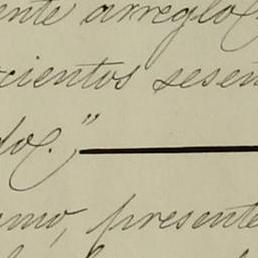 ente arreglo
cientos sesen
do."
omo, presente